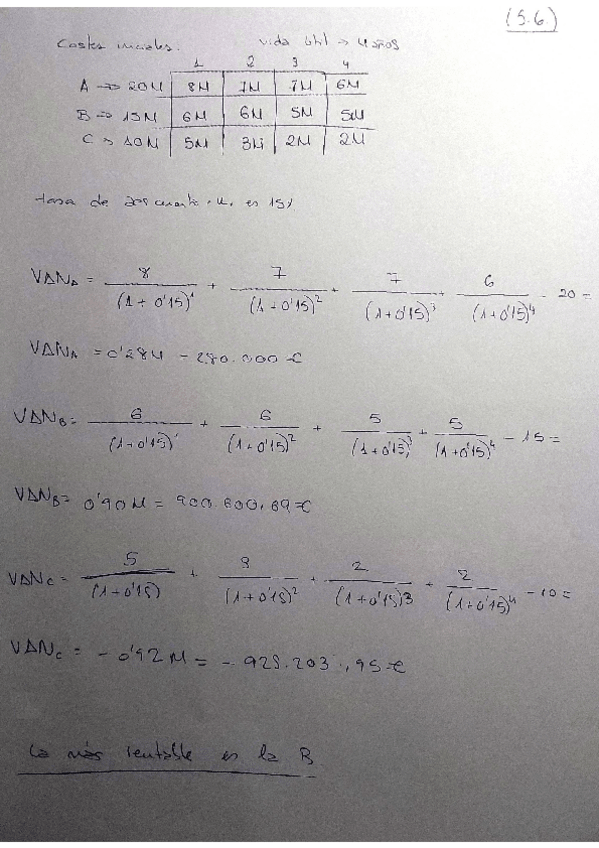 (5.6.)
Costes iniciales. vida útil → 4 años
1 2 3 4
A => 20M 8M 7M 7M 6M
B => 15M 6M 6M 5M 5M
C => 10M 5M 3M 2M 2M
tasa de es 15%
VAN_A = 8/(1+0'15)^1 + 7/(1+0'15)^2 + 7/(1+0'15)^3 + 6/(1+0'15)^4 - 20 =
VAN_A = 0'28M - 280.000 €
VAN_B = 6/(1+0'15)^1 + 6/(1+0'15)^2 + 5/(1+0'15)^3 + 5/(1+0'15)^4 - 15 =
VAN_B = 0'90M = 900.800,69 €
VAN_C = 5/(1+0'15) + 3/(1+0'15)^2 + 2/(1+0'15)3 + 2/(1+0'15)^4 - 10 =
VAN_C = - 0'92M = - 928.203,95 €
La más rentable es la B